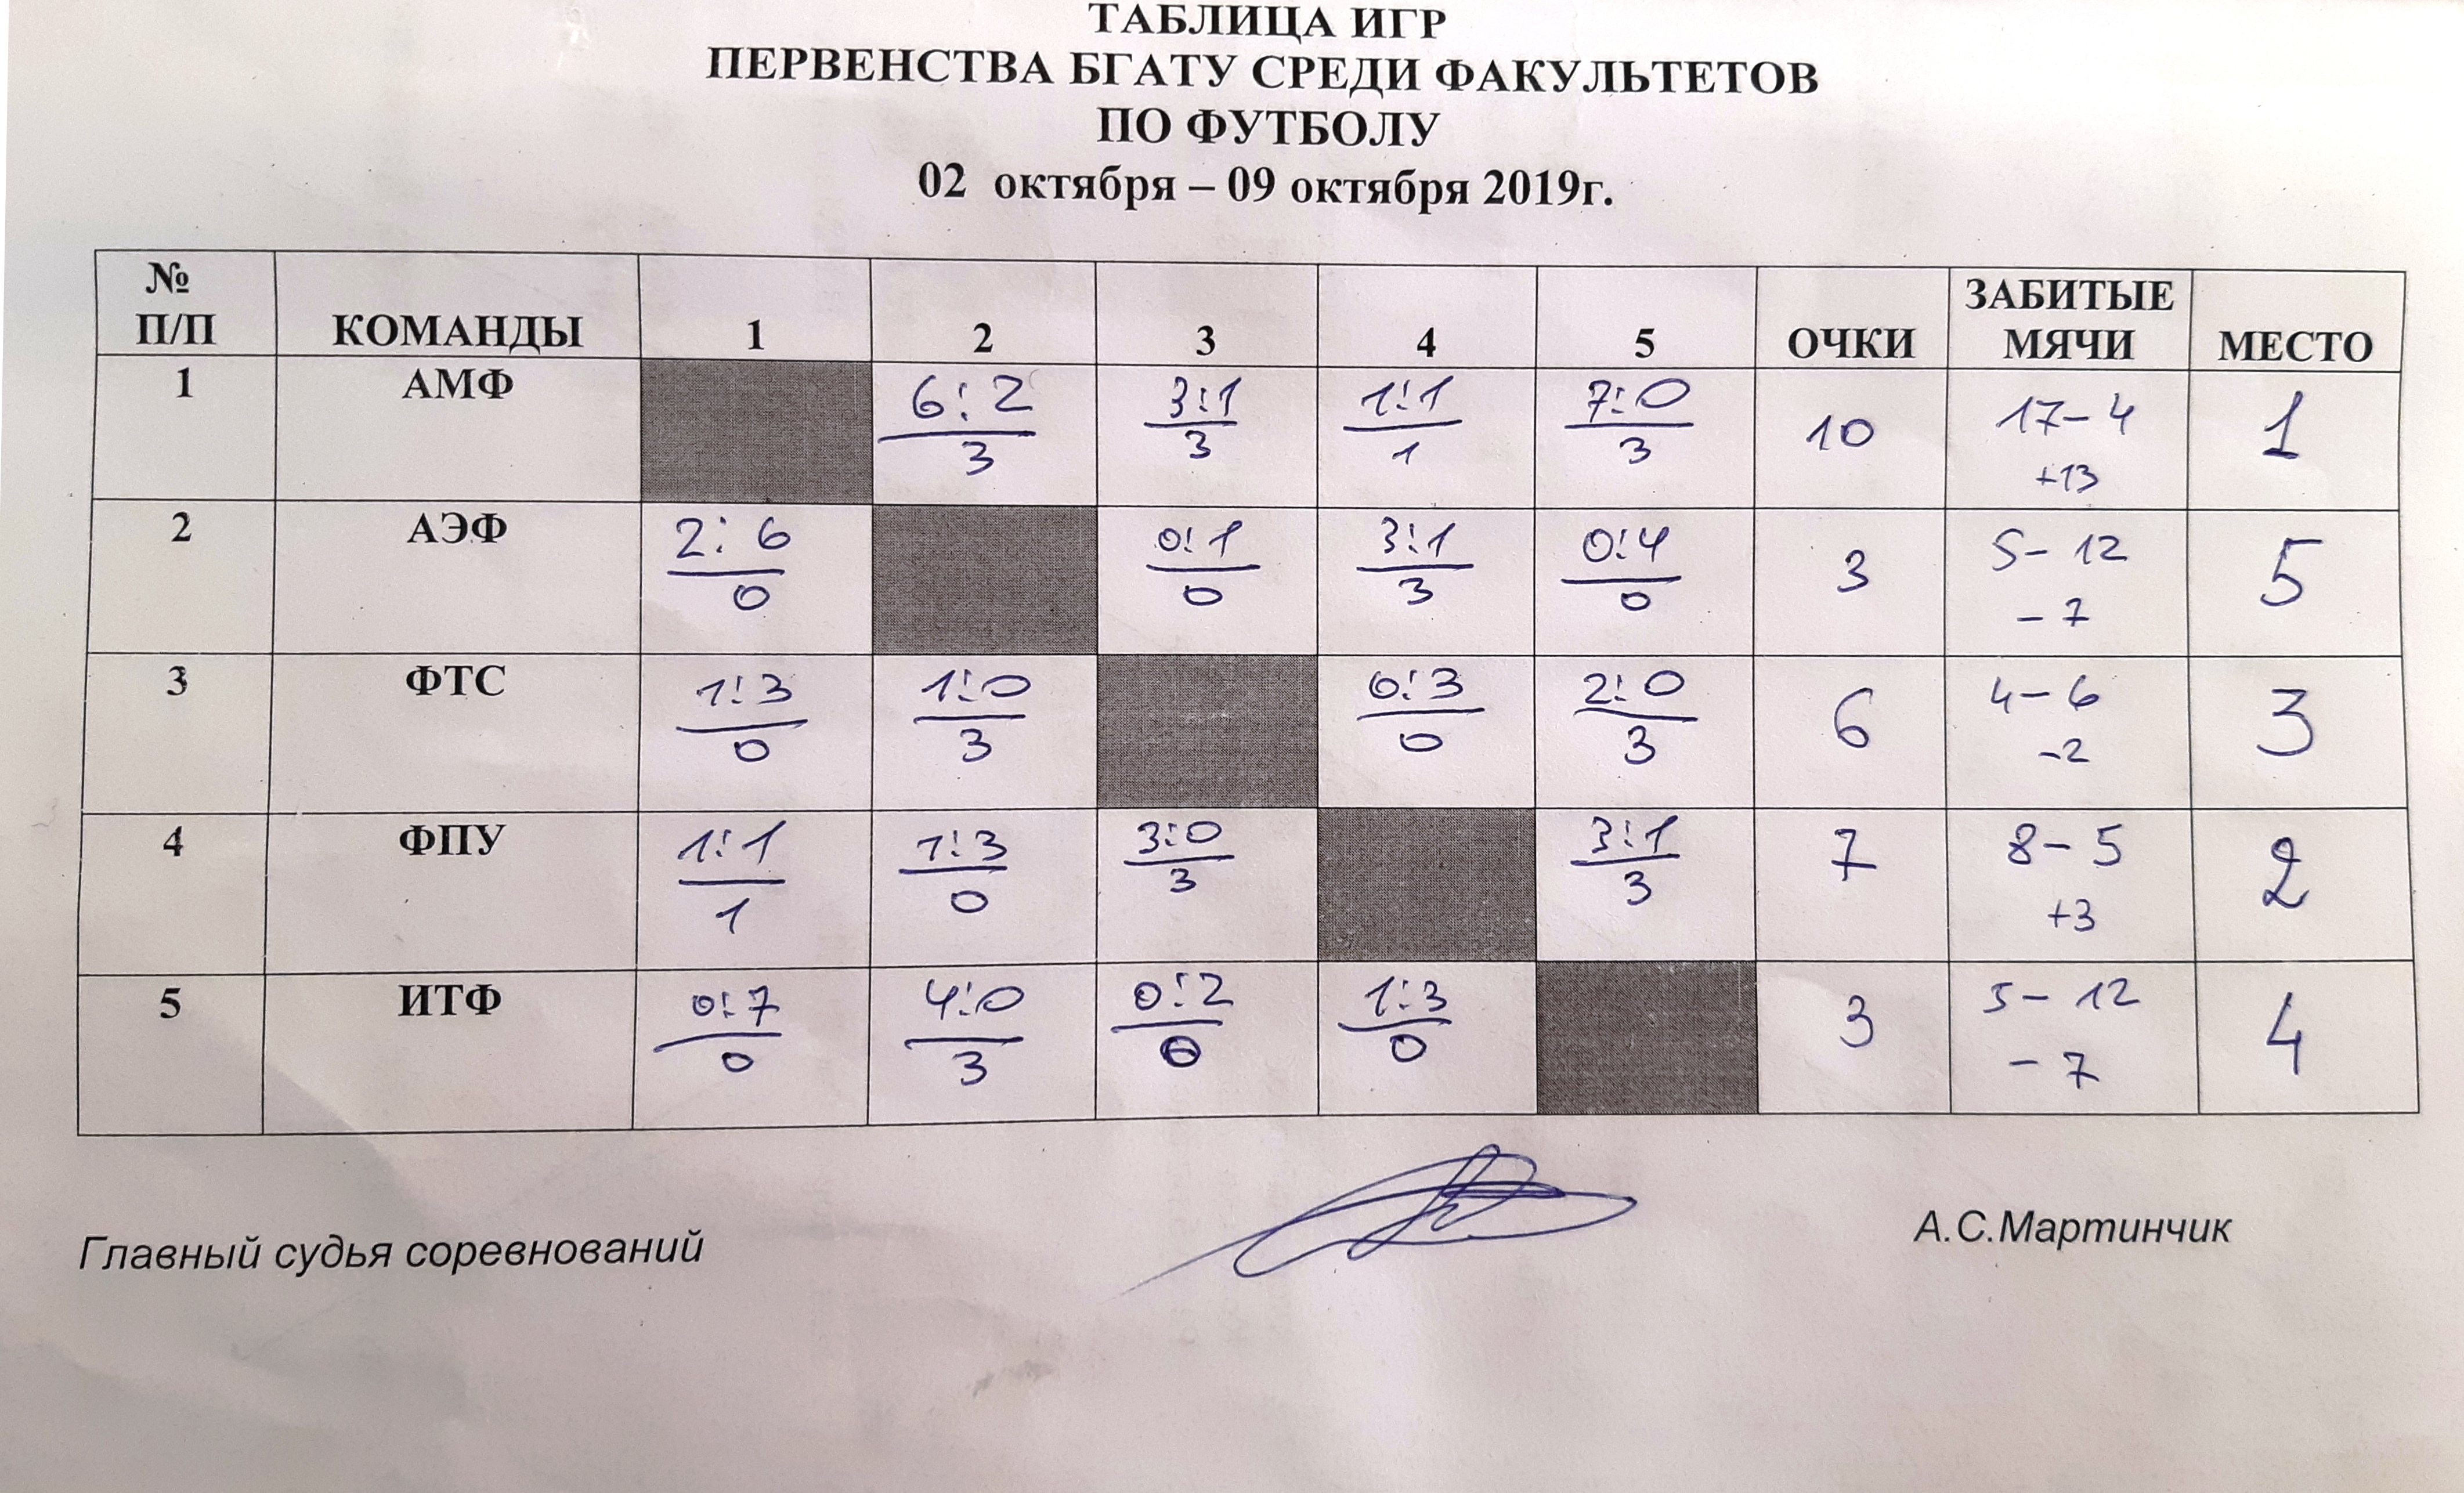 ТАБЛИЦА ИГР
ПЕРВЕНСТВА БГАТУ СРЕДИ ФАКУЛЬТЕТОВ
ПО ФУТБОЛУ
02 октября – 09 октября 2019г.
№ П/П КОМАНДЫ 1 2 3 4 5 ОЧКИ ЗАБИТЫЕ МЯЧИ МЕСТО
1 АМФ 6:2 3:1 1:1 7:0 10 17-4 1
3 3 1 3 +13
2 АЭФ 2:6 0:1 3:1 0:4 3 5-12 5
0 0 3 0 -7
3 ФТС 1:3 1:0 0:3 2:0 6 4-6 3
0 3 0 3 -2
4 ФПУ 1:1 1:3 3:0 3:1 7 8-5 2
1 0 3 3 +3
5 ИТФ 0:7 4:0 0:2 1:3 3 5-12 4
0 3 0 0 -7
Главный судья соревнований А.С.Мартинчик